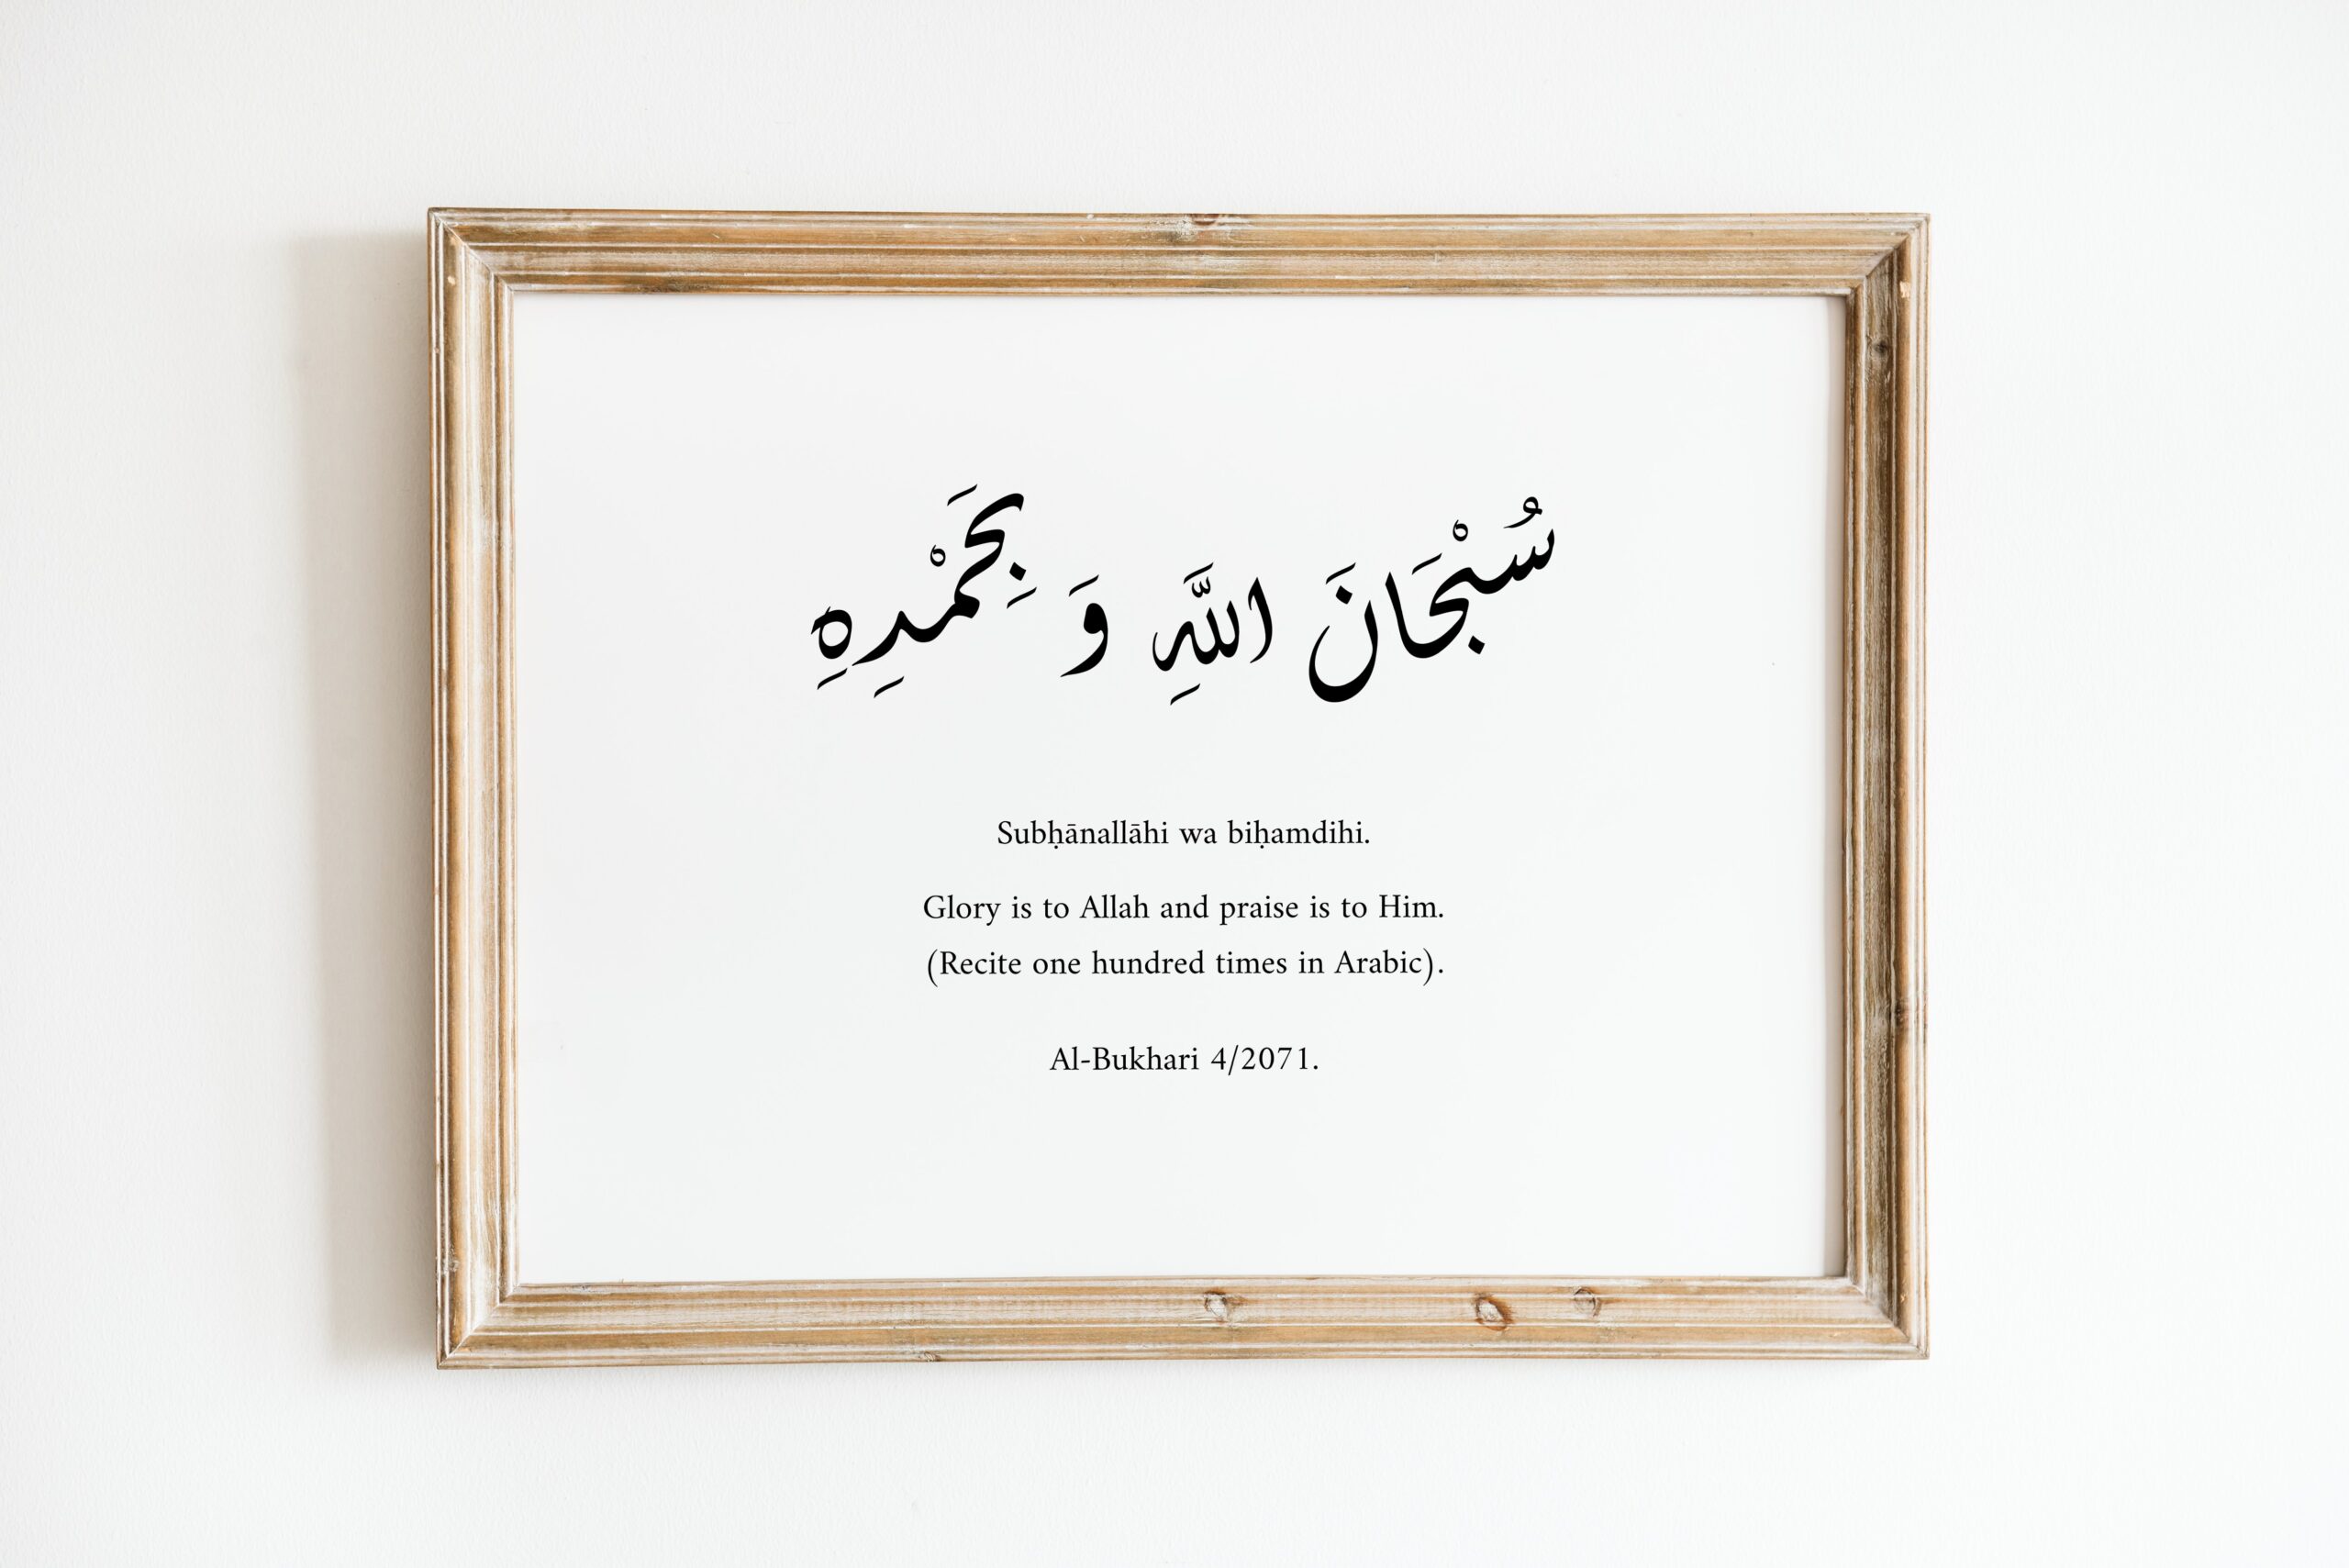 سُبْحَانَ اللَّهِ وَ بِحَمْدِهِ
Subḥānallāhi wa biḥamdihi.
Glory is to Allah and praise is to Him.
(Recite one hundred times in Arabic).
Al-Bukhari 4/2071.